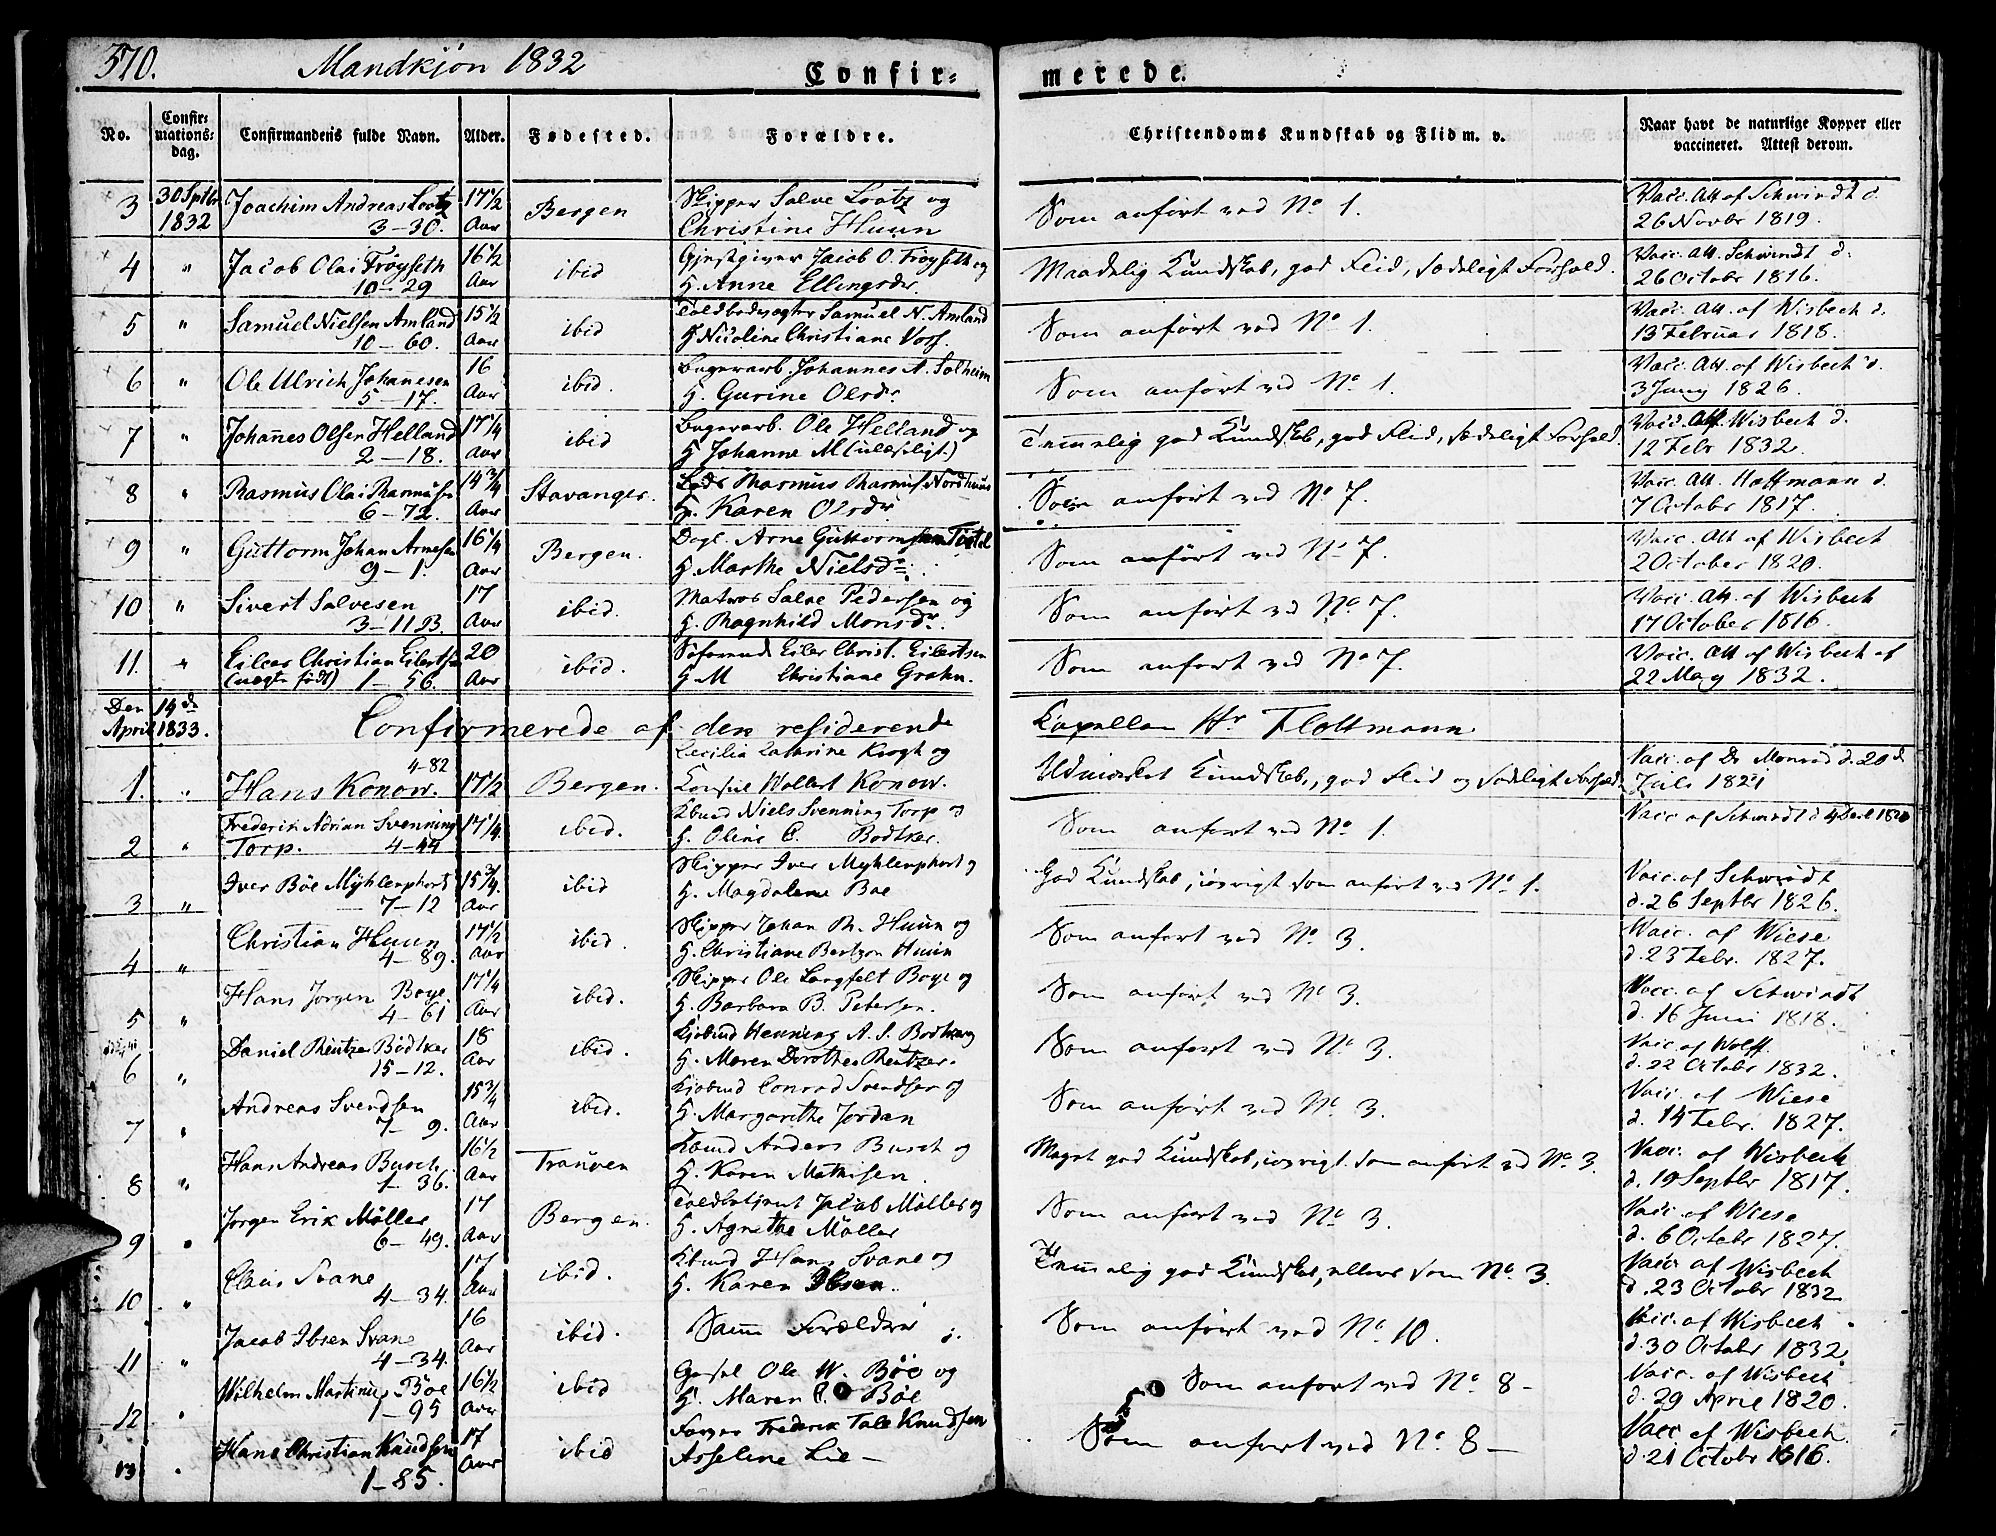 370.
Mandkjön 1832
Confir-
merede.
No.
Confir-
mations-
dag.
Confirmandens fulde Navn.
Alder.
Fødested.
Forældre.
Christendoms Kundskab og Flid m. v.
Naar havt de naturlige Kopper eller
vaccineret. Attest derom.
3 30 Septbr 1832 Joachim Andreas Lootz 3-30. 17 1/2 Aar Bergen
Skipper Salve Lootz og
Christine Huun
Som anfört ved No. 1.
Vacc. Att. af Schwindt d.
26 Novbr 1819.
4 " Jacob Olai Fröyseth 10-29 16 1/2 Aar ibid
Gjestgiver Jacob O. Fröyseth og
H. Anne Ellingsdr.
Maadelig Kundskab, god Flid, sædeligt Forhold.
Vacc. Att. Schwindt d.
26 October 1816.
5 " Samuel Nielsen Amland 10-60. 15 1/2 Aar ibid
Samuel N. Amland
H. Nicoline Christiane Voss.
Som anfört ved No. 1.
Vacc. Att. af Wisbech d.
13 Februar 1818.
6 " Ole Ulrich Johannesen 5-17. 16 Aar ibid.
Johannes A. Solheim
H. Gurine Olsdr.
Som anfört ved No. 1.
Vacc. Att. af Wisbech d.
3 Juny 1826.
7 " Johannes Olsen Helland 2-18. 17 1/4 Aar ibid
Ole Helland og
H. Johanne M (ulæseligt)
Temmelig god Kundskab, god Flid, sædeligt Forhold.
Vacc. Att. Wisbech d.
12 Febr 1832.
8 " Rasmus Olai Rasmusen 6-72. 14 3/4 Aar Stavanger.
Rasmus Rasmus. Nordhuus
H. Karen Olsdr.
Som anfört ved No. 7.
Vacc. Att. Hoffmann d.
7 October 1817.
9 " Guttorm Johan Arnesen 9-1. 16 1/4 Aar Bergen.
Dagl. Arne Guttormsen
H. Marthe Nielsdr.
Som anfört ved No. 7.
Vacc. Att af Wisbech
2 October 1820.
10 " Sivert Salvesen 3-1123. 17 Aar ibid.
Matros Salve Pedersen og
H. Ragnhild Monsdr.
Som anfört ved No. 7.
Vacc. Att. af Wisbech
17 October 1816.
11. " Eiler Christian Eilertsen (uægte född) 1-56. 20 Aar ibid.
Eiler Christ. Eilertsen
H. M Christiane Grahn.
Som anfört ved No. 7.
Vacc. Att af Wisbech af
22 May 1832.
Den 14de
April 1833.
Confirmerede af den residerende
Kapellan Hr Flottmann
1. " Hans Konow. 4-82 17 1/2 Bergen.
Cecilia Catarine Krogh og
Consul Wollert Konow.
Udmærket Kundskab, god Flid og sædeligt Forhold.
Vacc. af Dr Monrad d. 20d
Juli 1821
2 " Frederik Adrian Svenning
Torp. 4-44 17 1/4. ibid.
Kbmd Niels Svenning Torp og
H. Oline C. Bödtker.
Som anfört ved No. 1.
Vacc af Schwindt d 4 Decb 1820
3 " Iver Böe Myhlenphort 7-12 15 3/4. Aar ibid
Skipper Iver Myhlenphort og
H. Magdalene Boe
God Kundskab, iövrigt som anfört ved No. 1.
Vacc. af Schwindt
d. 26 Septbr 1826.
4 " Christian Huun 4-89. 17 1/2 Aar ibid.
Skipper Johan Ph. Huun og
H. Christiane Huun
Som anfört ved No. 3.
Vacc. af Wiese
d. 23 Febr. 1827.
5 " Hans Jörgen Boye 4-61 17 1/4 Aar ibid.
Skipper Ole Boye og
H. Barbara B. Petersen.
Som anfört ved No. 3.
Vacc. af Schwindt
d. 16 Juni 1818.
6 " Daniel Reutzer Bödtker 15-12. 18 Aar ibid.
Kjöbmd Henning A. S. Bödtker og
H. Maren Dorothea Reutzer.
Som anfört ved No. 3.
Vacc af Wolff.
d. 22 Octobr 1832.
7 " Andreas Svendsen 7-9. 15 3/4 Aar ibid.
Kjöbmd Conrad Svendsen og
H. Margarethe Jordan
Som anfört ved No. 3.
Vacc. af Wiese
d. 14 Febr. 1827.
8 " Hans Andreas Busch 1-36. 16 1/2 Aar Tranöen
Kbmd Anders Busch og
H. Karen Mathisen
Meget god Kundskab, iövrigt som anfört ved No. 3.
Vacc. af Wisbech
d. 19 Septbr 1817.
9 " Jörgen Erik Möller 6-49. 17 Aar Bergen.
Jacob Möller og
H. Agnethe Möller
Som anfört ved No. 3.
Vacc. af Wiese
d. 6 Octobr 1827.
10 " Claus Svane 4-34. 17 Aar ibid.
Kbmd Hans Svane og
H. Karen Ibsen.
Temmelig god Kundskab, ellers som No. 3.
Vacc af Wisbech
d. 23 Octobr 1832
11 " Jacob Ibsen Svane 4-34. 16 Aar ibid.
Samme Forældre
Som anfört ved No. 10.
Vacc. af Wisbech
d. 30 Octobr 1832.
12 " Wilhelm Martinus Böe 1-95 16 1/2 Aar ibid
Ole W. Böe og
H. Maren C. Böe
Som anfört ved No. 8-
Vacc. af Wisbech
d. 29 April 1820.
13 " Hans Christian Knudsen 1-85. 17 Aar ibid
Frederik Tale Knudsen
Asseline Lie-
Som anfört ved No. 8-
Vacc af Wisbech
d. 21 Octobr 1816.